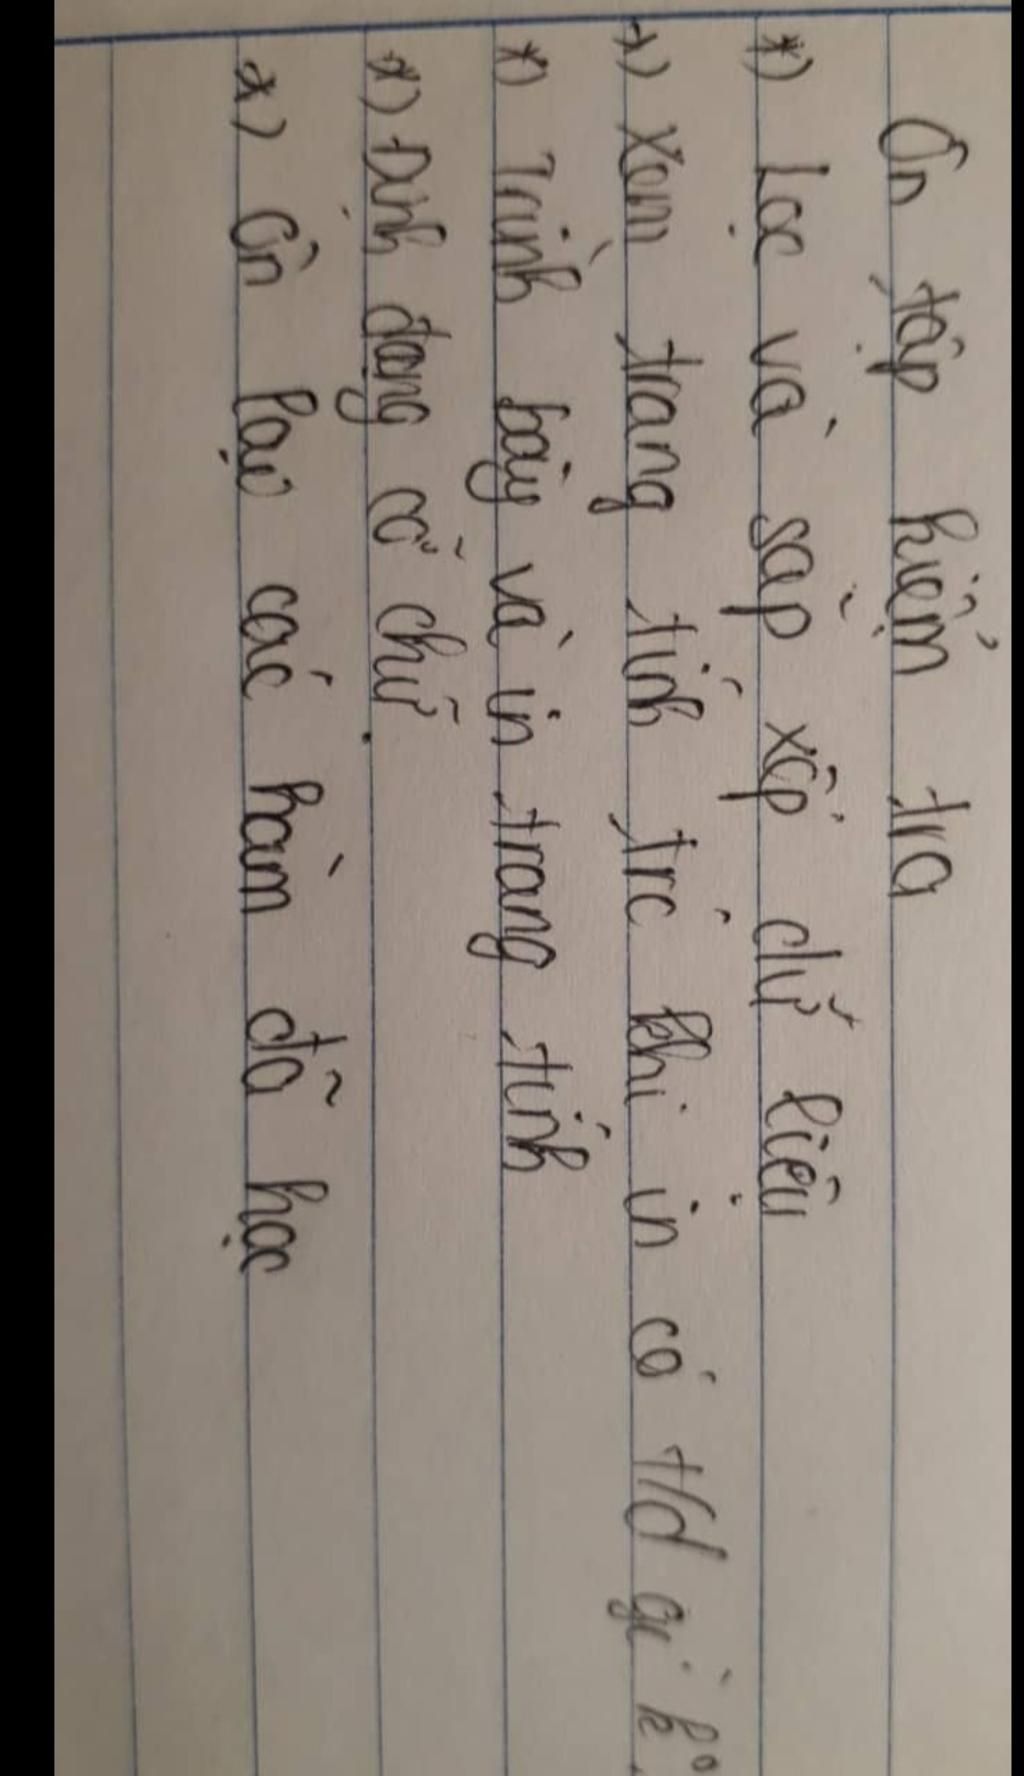 Ôn tập kiểm tra
*) Lọc và sắp xếp dữ liệu
*) Xem trang tính trc khi in có t/d gì k°
*) Trình bày và in trang tính
*) Định dạng cỡ chữ.
*) Ôn lại các hàm đã học